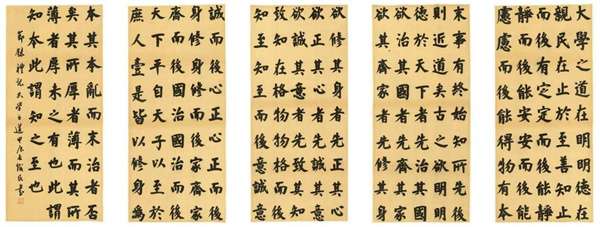 大學之道在明明德在
親民在止於至善知止
而後有定定而後能靜
靜而後能安安而後能
慮慮而後能得物有本
末事有終始知所先後
則近道矣古之欲明明
德於天下者先治其國
欲治其國者先齊其家
欲齊其家者先修其身
欲修其身者先正其心
欲正其心者先誠其意
欲誠其意者先致其知
致知在格物物格而後
知至知至而後意誠意
誠而後心正心正而後
身修身修而後家齊家
齊而後國治國治而後
天下平自天子以至於
庶人壹是皆以修身為
本其本亂而末治者否
矣其所厚者薄而其所
薄者厚未之有也此謂
知本此謂知之至也
節錄禮記大學之道 書